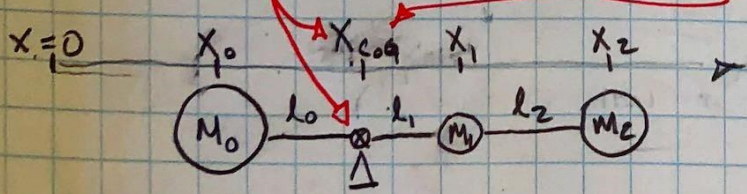 X=0 X0 XCOG X1 X2
M0 l0 l1 M1 l2 M2
Δ